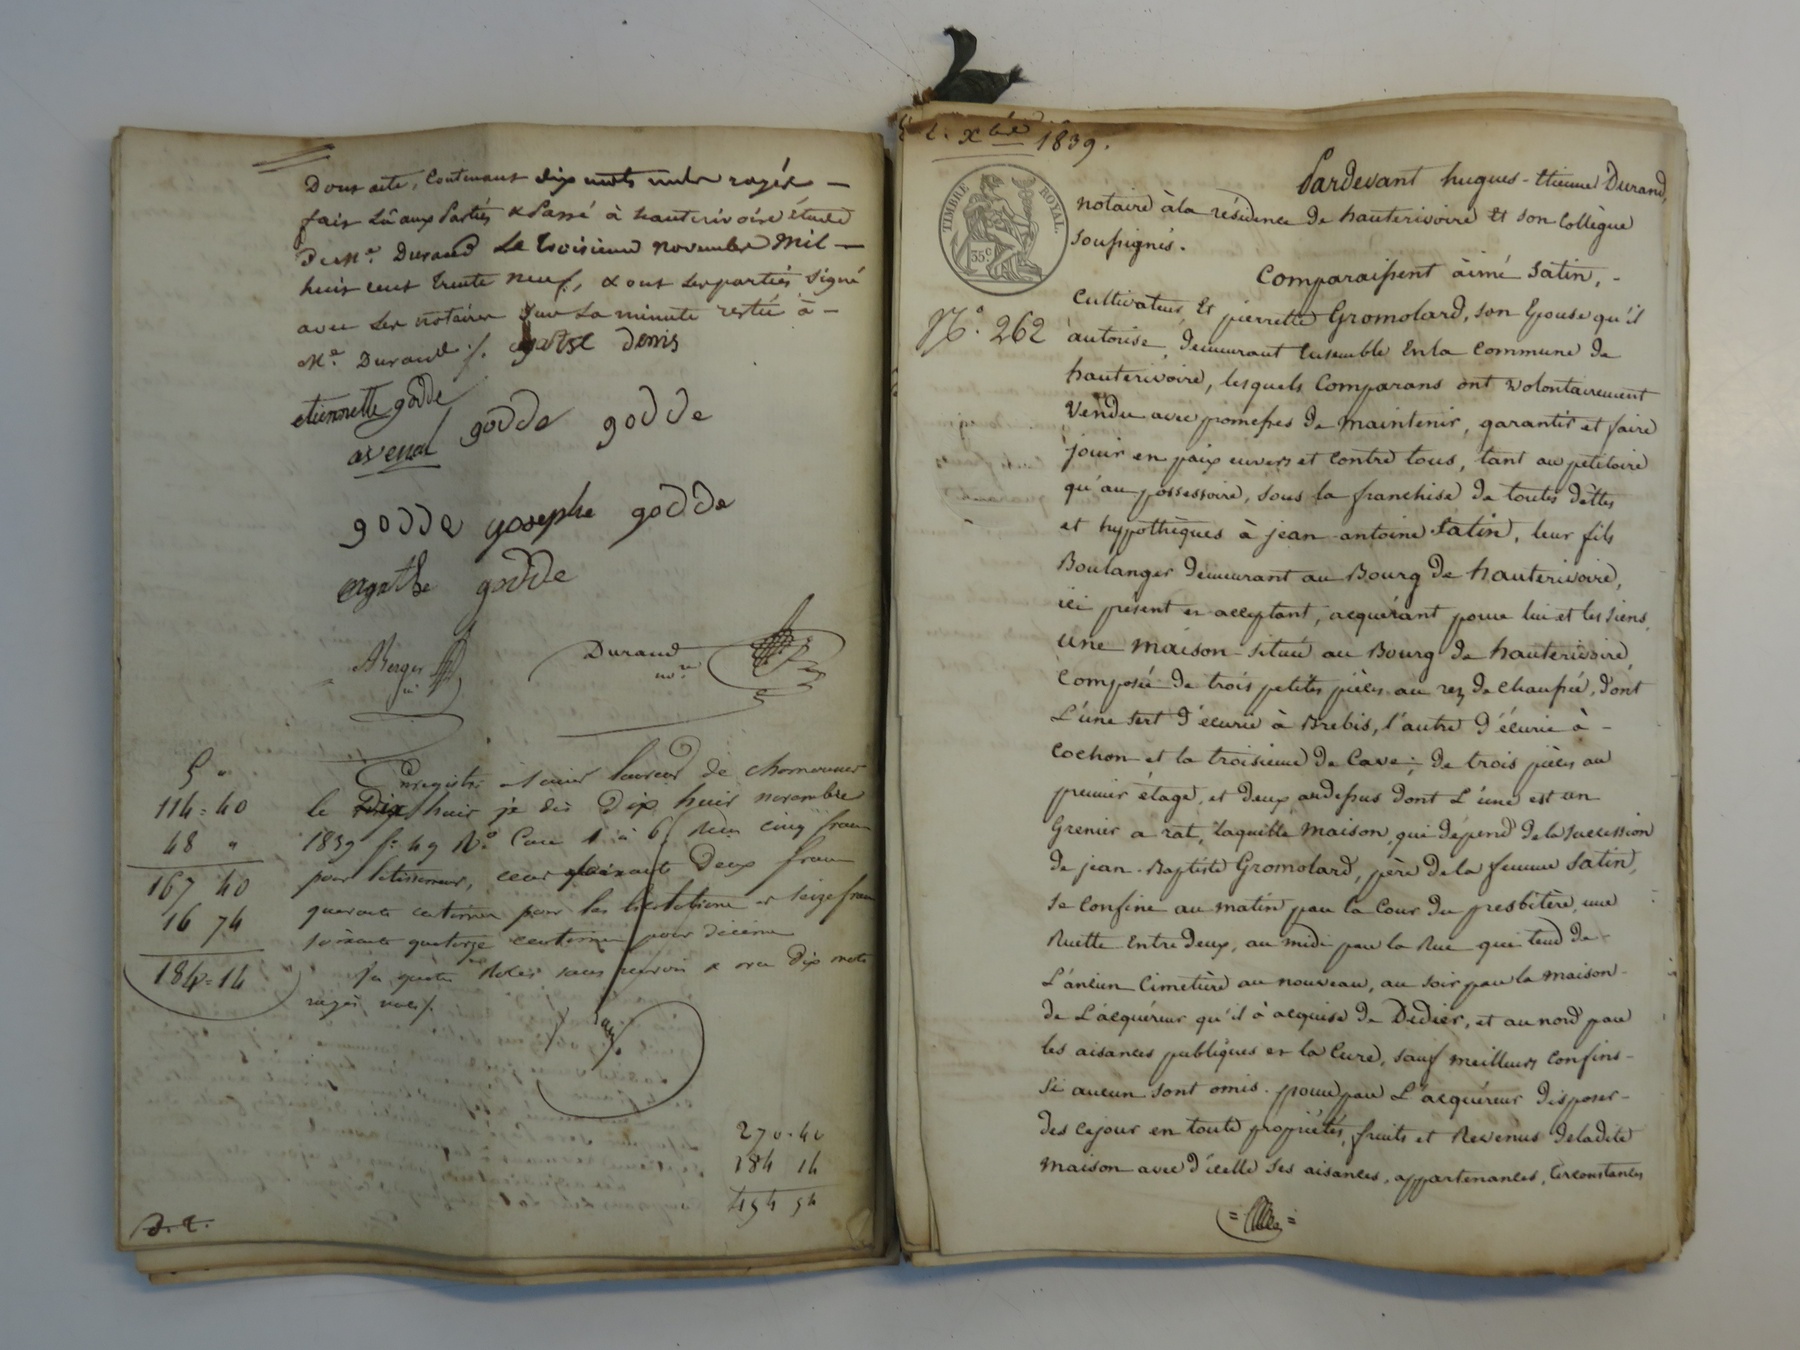 Dont acte, Contenant dix mots nuls rayés —
fait Lû aux Parties & Passé à hauterivoire étude
De Me. Durand Le troisieme novembre Mil —
huit cent trente neuf, & ont les parties signé
avec les notaires sur La minute restée à —
Me. Durand /. agathe denis
etiennette godde
avenal godde godde
godde josephe godde
agathe godde
ABerger
Durand
no.re
5 "
114 = 40
48 "
167 40
16 74
184 = 14
Enregistré à Saint Laurent de chamousset
le Dix huit je dis Dix huit novembre
1839 fo. 49 Ro. Case 1 à 6. Reçu cinq francs
pour , cent soixante Deux francs
quarante centimes pour les et seize francs
soixante quatorze centimes pour décime
quatre Roles sans renvoi & dix mots
rayés nuls /.
270 . 40
184 14
454 54
D. E.
2. Xbre 1839.
TIMBRE ROYAL.
35 c
No. 262
Pardevant hugues - Etienne Durand,
notaire à la résidence de hauterivoire Et son Collègue
soussignés.
Comparaissent aimé Satin, -
Cultivateur, Et pierrette Gromolard, son Epouse qu'il
autorise, demeurant Ensemble En la Commune de
hauterivoire, lesquels Comparans ont volontairement
Vendu avec promesses de maintenir, garantir et faire
jouir en paix envers et Contre tous, tant au petitoire
qu'au possessoire, sous la franchise de toutes dettes
et hypothèques à jean-antoine Satin, leur fils
Boulanger demeurant au Bourg de hauterivoire,
ici présent et acceptant, acquérant pour lui et les siens,
Une maison située au Bourg de hauterivoire,
Composée de trois petites pièces au rez de chaussée, dont
L'une sert d'écurie à Brebis, l'autre d'écurie à -
Cochon et la troisieme de Cave ; de trois pièces au
premier étage, et deux audessus dont L'une est un
Grenier a rat, laquelle maison, qui dépend de la Succession
de jean-Baptiste Gromolard, père de la femme Satin,
se Confine au matin par la Cour du presbitère, une
Ruette Entre deux, au midi par la Rue qui tend de
L'ancien Cimetière au nouveau, au soir par la maison -
de L'acquéreur qu'il à acquise de Dedier, et au nord par
les aisances publiques et la Cure, sauf meilleurs Confins -
si aucun sont omis. pour par L'acquéreur disposer -
des ce jour en toute propriétés, fruits et Revenus de ladite
Maison avec d'icelle ses aisances, appartenances, Circonstances